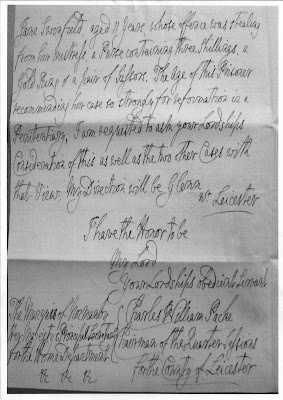 Jane Swinfield, aged 11 Years whose offence was stealing
from her Mistress, a Purse containing three Shillings, a
Gold Ring & a pair of Scissors. The Age of this Prisoner
recommending her case so strongly for reformation in a
Penitentiary, I am requested to ask your Lordships
Consideration of this as well as the two other Cases with
that View. My Direction will be Glenn
nr. Leicester
I have the Honor to be
My Lord
Your Lordships obedient Servant
Charles William Packe
The Marquess of Normanby
Her Majesty's Principal Secretary
for the Home Department
&c &c &c
Chairman of the Quarter Sessions
for the County of Leicester